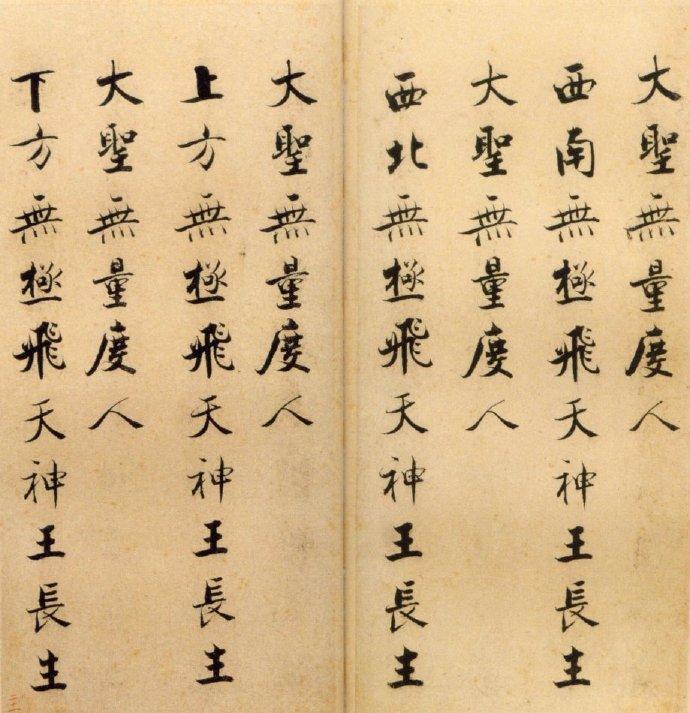 大聖無量度人
西南無極飛天神王長生
大聖無量度人
西北無極飛天神王長生
大聖無量度人
上方無極飛天神王長生
大聖無量度人
下方無極飛天神王長生